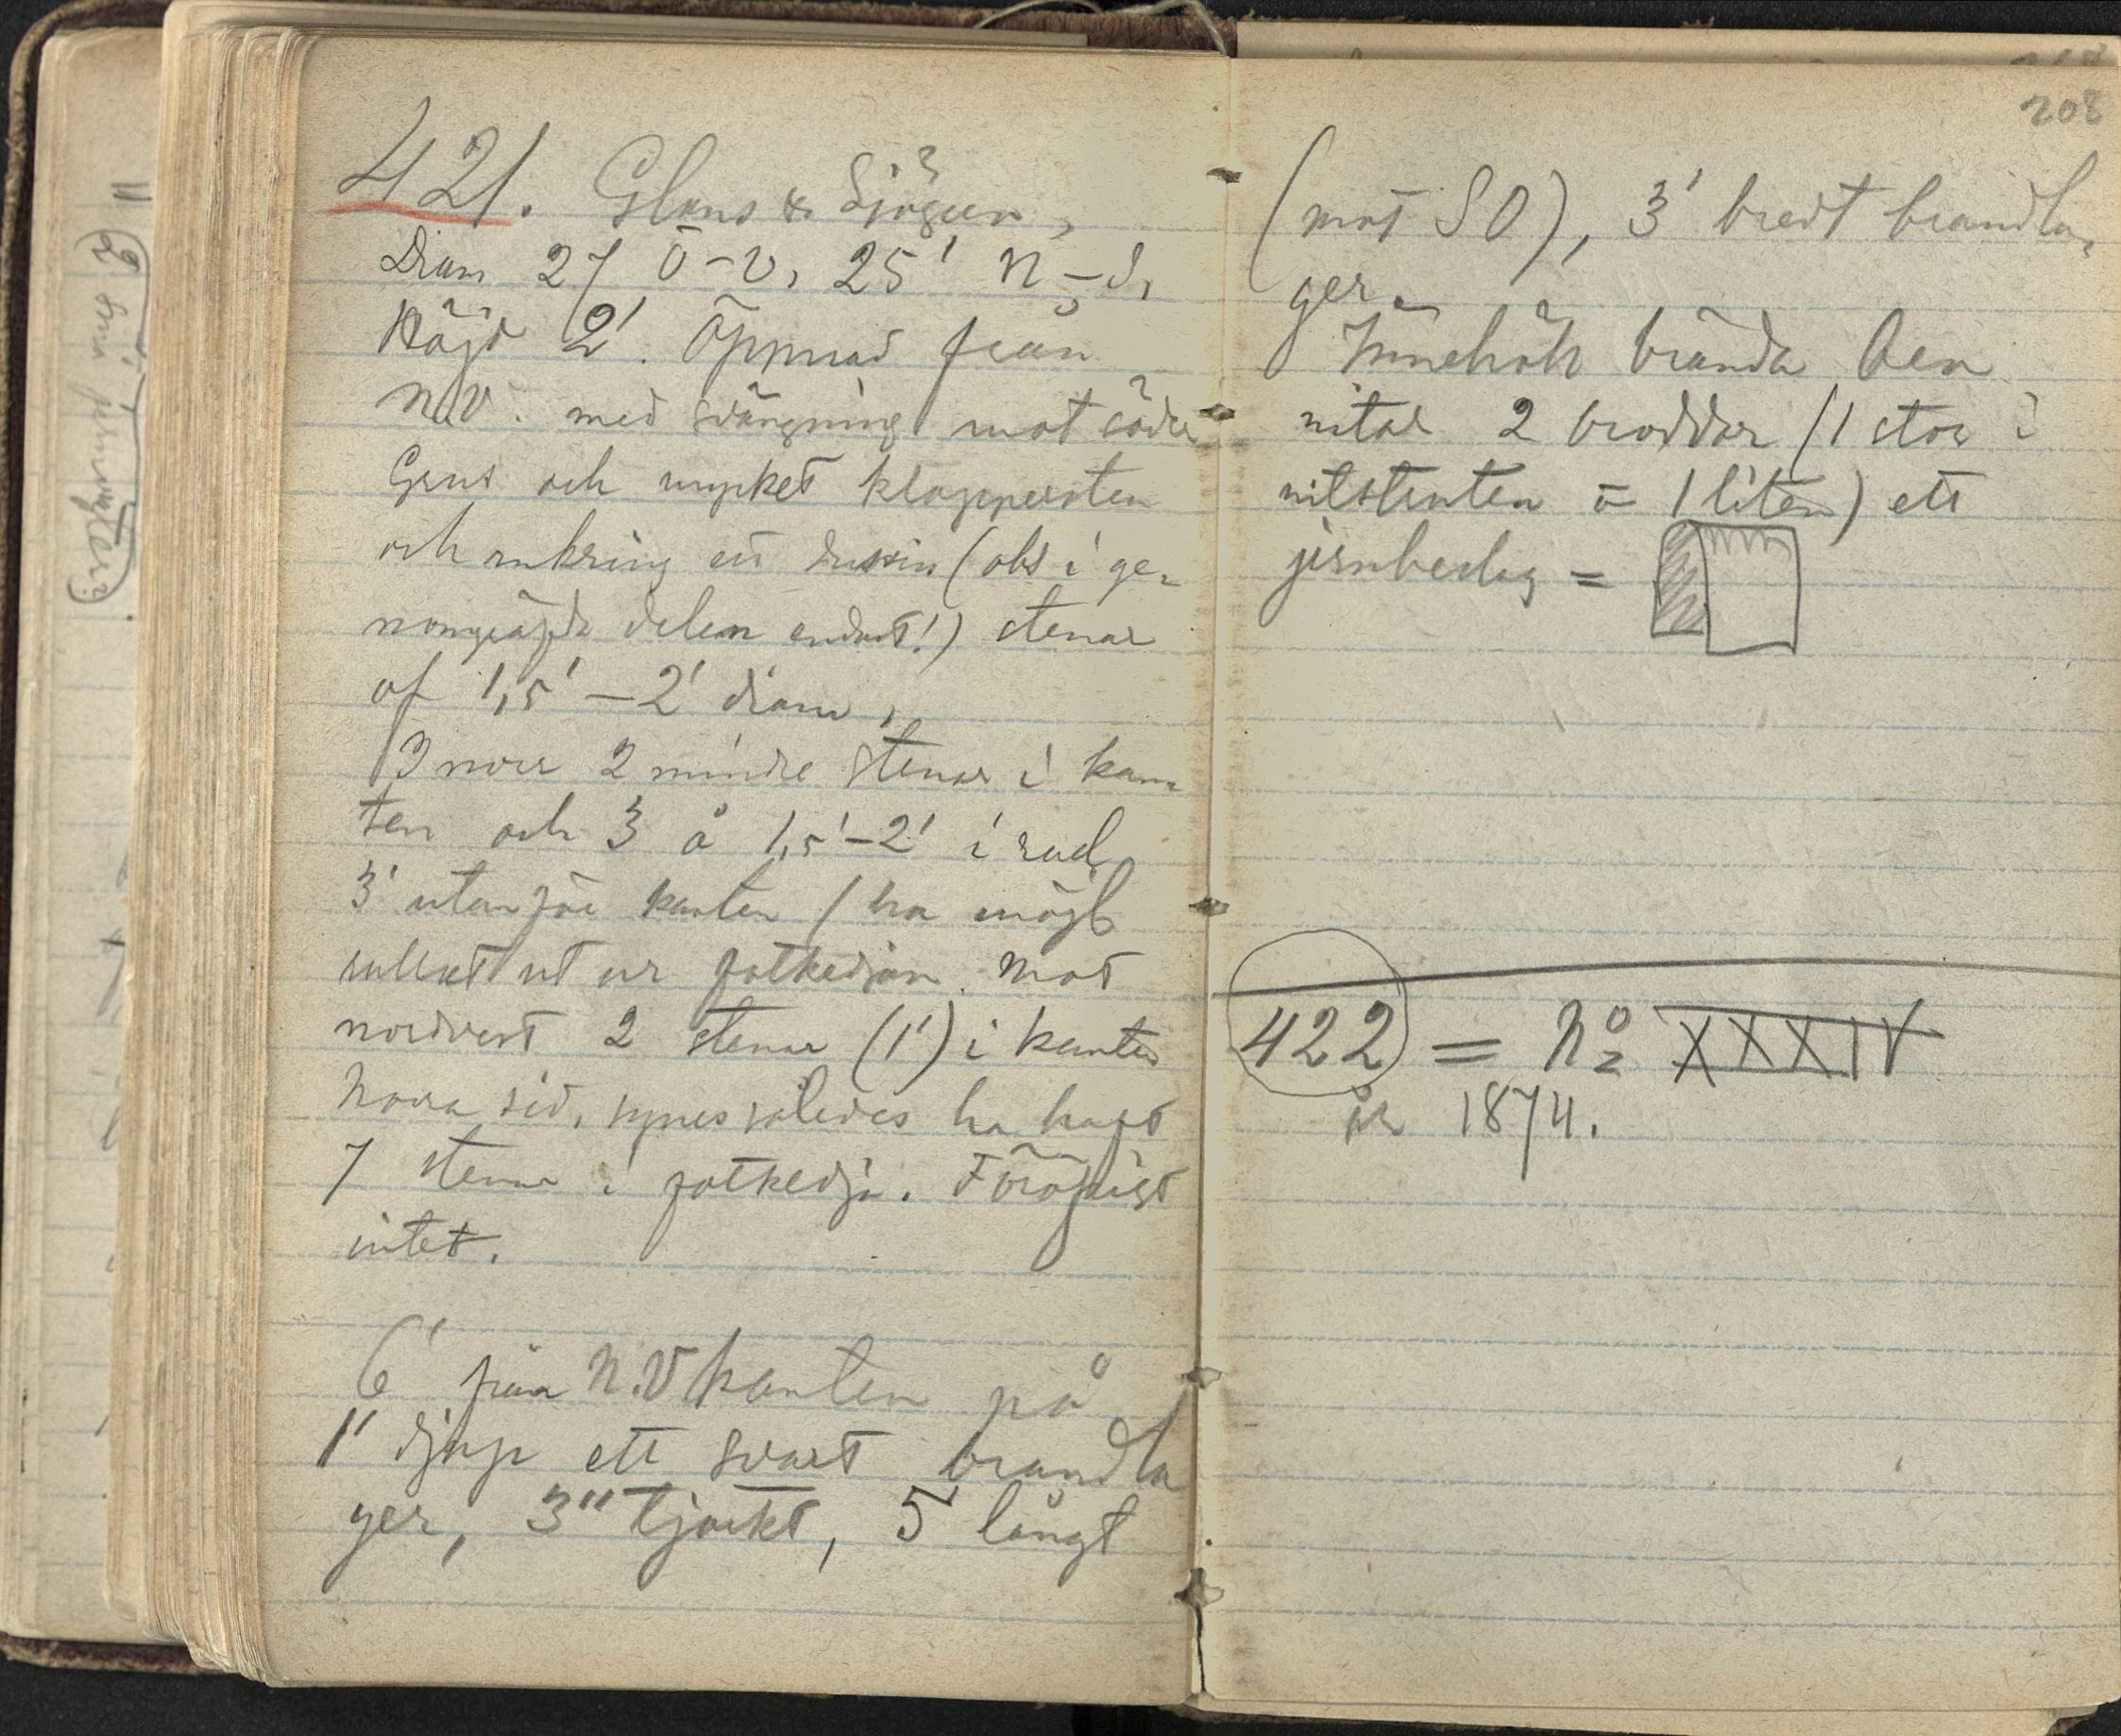 421. Glans & Sjögren,
Diam 27 Ö-V, 25' N-S,
Höjd 2'. Öppnad från
NV. med svängning mot söder
Grus och mycket klappersten
och omkring ett dussin (obs i ge-
nomgräfda delen endast!) stenar
af 1,5'-2' diam,
I norr 2 mindre stenar i kan-
ten och 3 à 1,5'-2' i rad
3' utanför kanten / ha möjl
rullat ut ur fotkedjan. Mot
nordvest 2 stenar (1') i kanten
Norra sid. synes således ha haft
7 stenar i fotkedja. Föröfrigt
intet.
6' från N.V kanten på
1' djup ett svart brandla
ger, 3" tjockt, 5' långt
208
(mot SO), 3' bredt brandla-
ger.
Innehöll brända ben
nitar 2 broddar (1 stor i
1 liten) ett
jernbeslag =
422 = No XXXIV
år 1874.